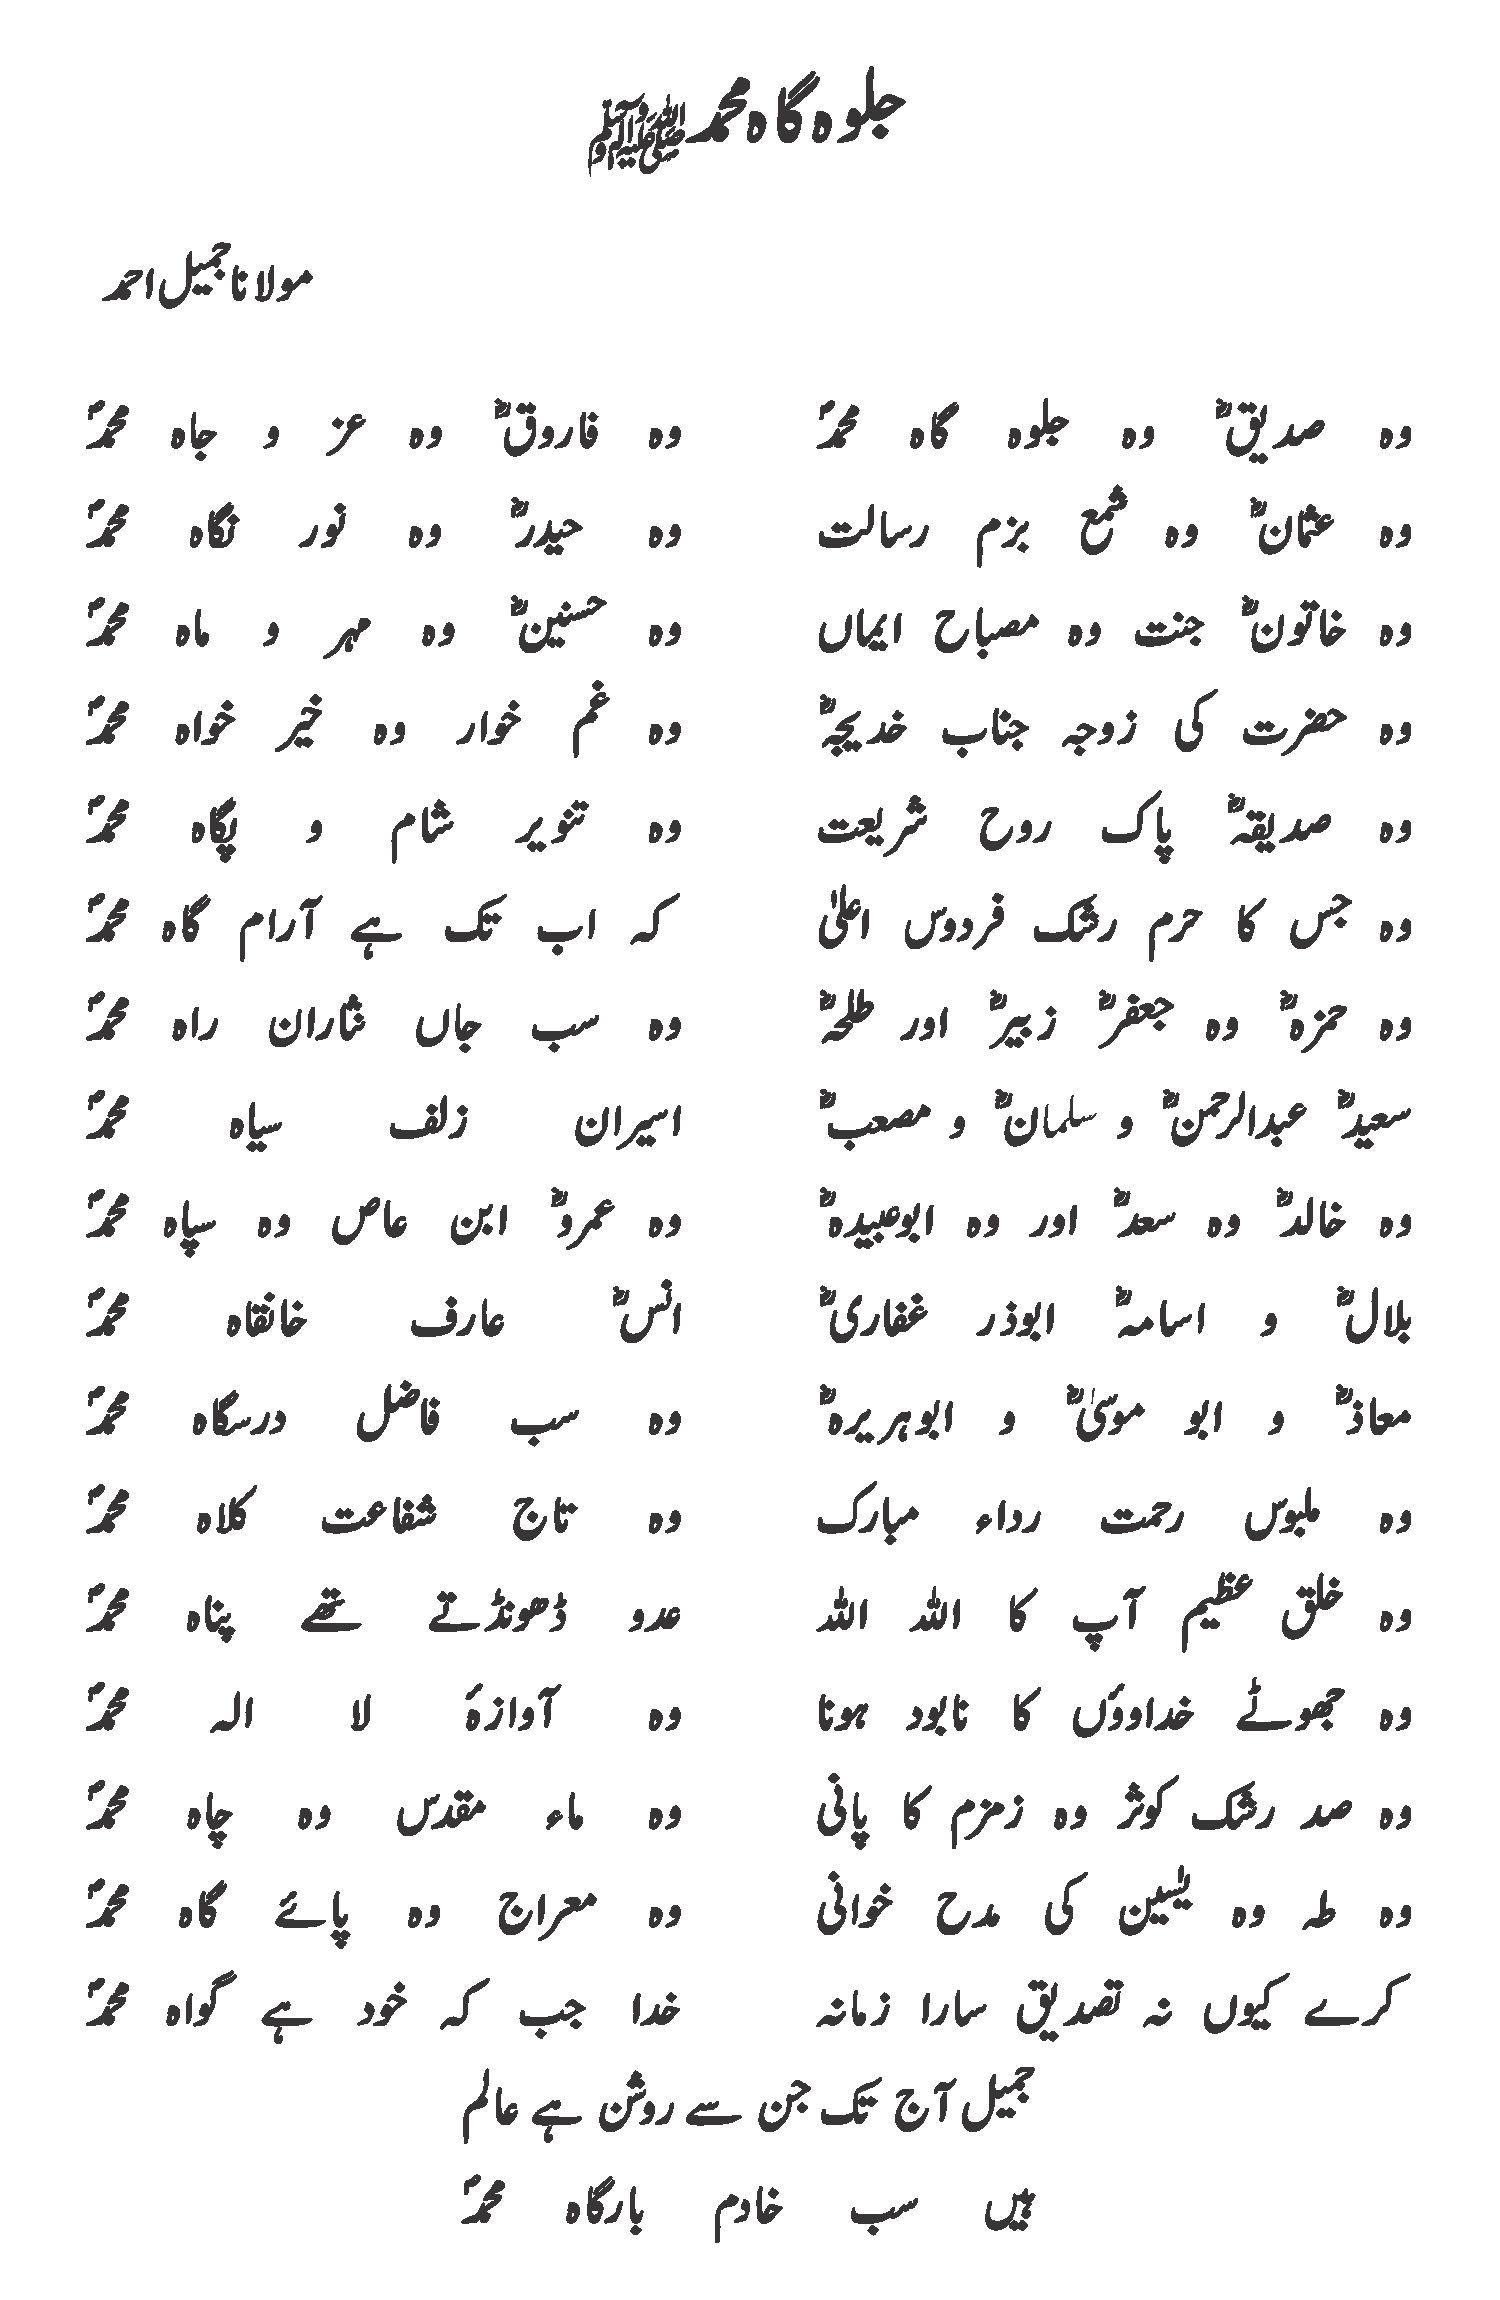 جلوہ گاہ محمد ﷺ
مولانا جمیل احمد
وہ صدیقؓ وہ جلوہ گاہ محمدؐ وہ فاروقؓ وہ عز و جاہ محمدؐ
وہ عثمانؓ وہ شمع بزم رسالت وہ حیدرؓ وہ نور نگاہ محمدؐ
وہ خاتونؓ جنت وہ مصباح ایماں وہ حسنینؓ وہ مہر و ماہ محمدؐ
وہ حضرت کی زوجہ جناب خدیجہؓ وہ غم خوار وہ خیر خواہ محمدؐ
وہ صدیقہؓ پاک روح شریعت وہ تنویر شام و پگاہ محمدؐ
وہ جس کا حرم رشک فردوس اعلیٰ کہ اب تک ہے آرام گاہ محمدؐ
وہ حمزہؓ وہ جعفرؓ زبیرؓ اور طلحہؓ وہ سب جاں نثاران راہ محمدؐ
سعیدؓ عبدالرحمنؓ و سلمانؓ و مصعبؓ اسیران زلف سیاہ محمدؐ
وہ خالدؓ وہ سعدؓ اور وہ ابوعبیدہؓ وہ عمروؓ ابن عاص وہ سپاہ محمدؐ
بلالؓ و اسامہؓ ابوذر غفاریؓ انسؓ عارف خانقاہ محمدؐ
معاذؓ و ابو موسیٰؓ و ابوہریرہؓ وہ سب فاضل درسگاہ محمدؐ
وہ ملبوس رحمت رداء مبارک وہ تاج شفاعت کلاہ محمدؐ
وہ خلق عظیم آپ کا اللہ اللہ عدو ڈھونڈتے تھے پناہ محمدؐ
وہ جھوٹے خداووٗں کا نابود ہونا وہ آوازہٗ لا الہ محمدؐ
وہ صد رشک کوثر وہ زمزم کا پانی وہ ماء مقدس وہ چاہ محمدؐ
وہ طہ وہ یٰسین کی مدح خوانی وہ معراج وہ پائے گاہ محمدؐ
کرے کیوں نہ تصدیق سارا زمانہ خدا جب کہ خود ہے گواہ محمدؐ
جمیل آج تک جن سے روشن ہے عالم
ہیں سب خادم بارگاہ محمدؐ